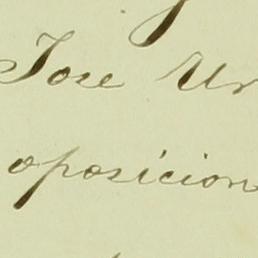 Jose Ur
oposicion